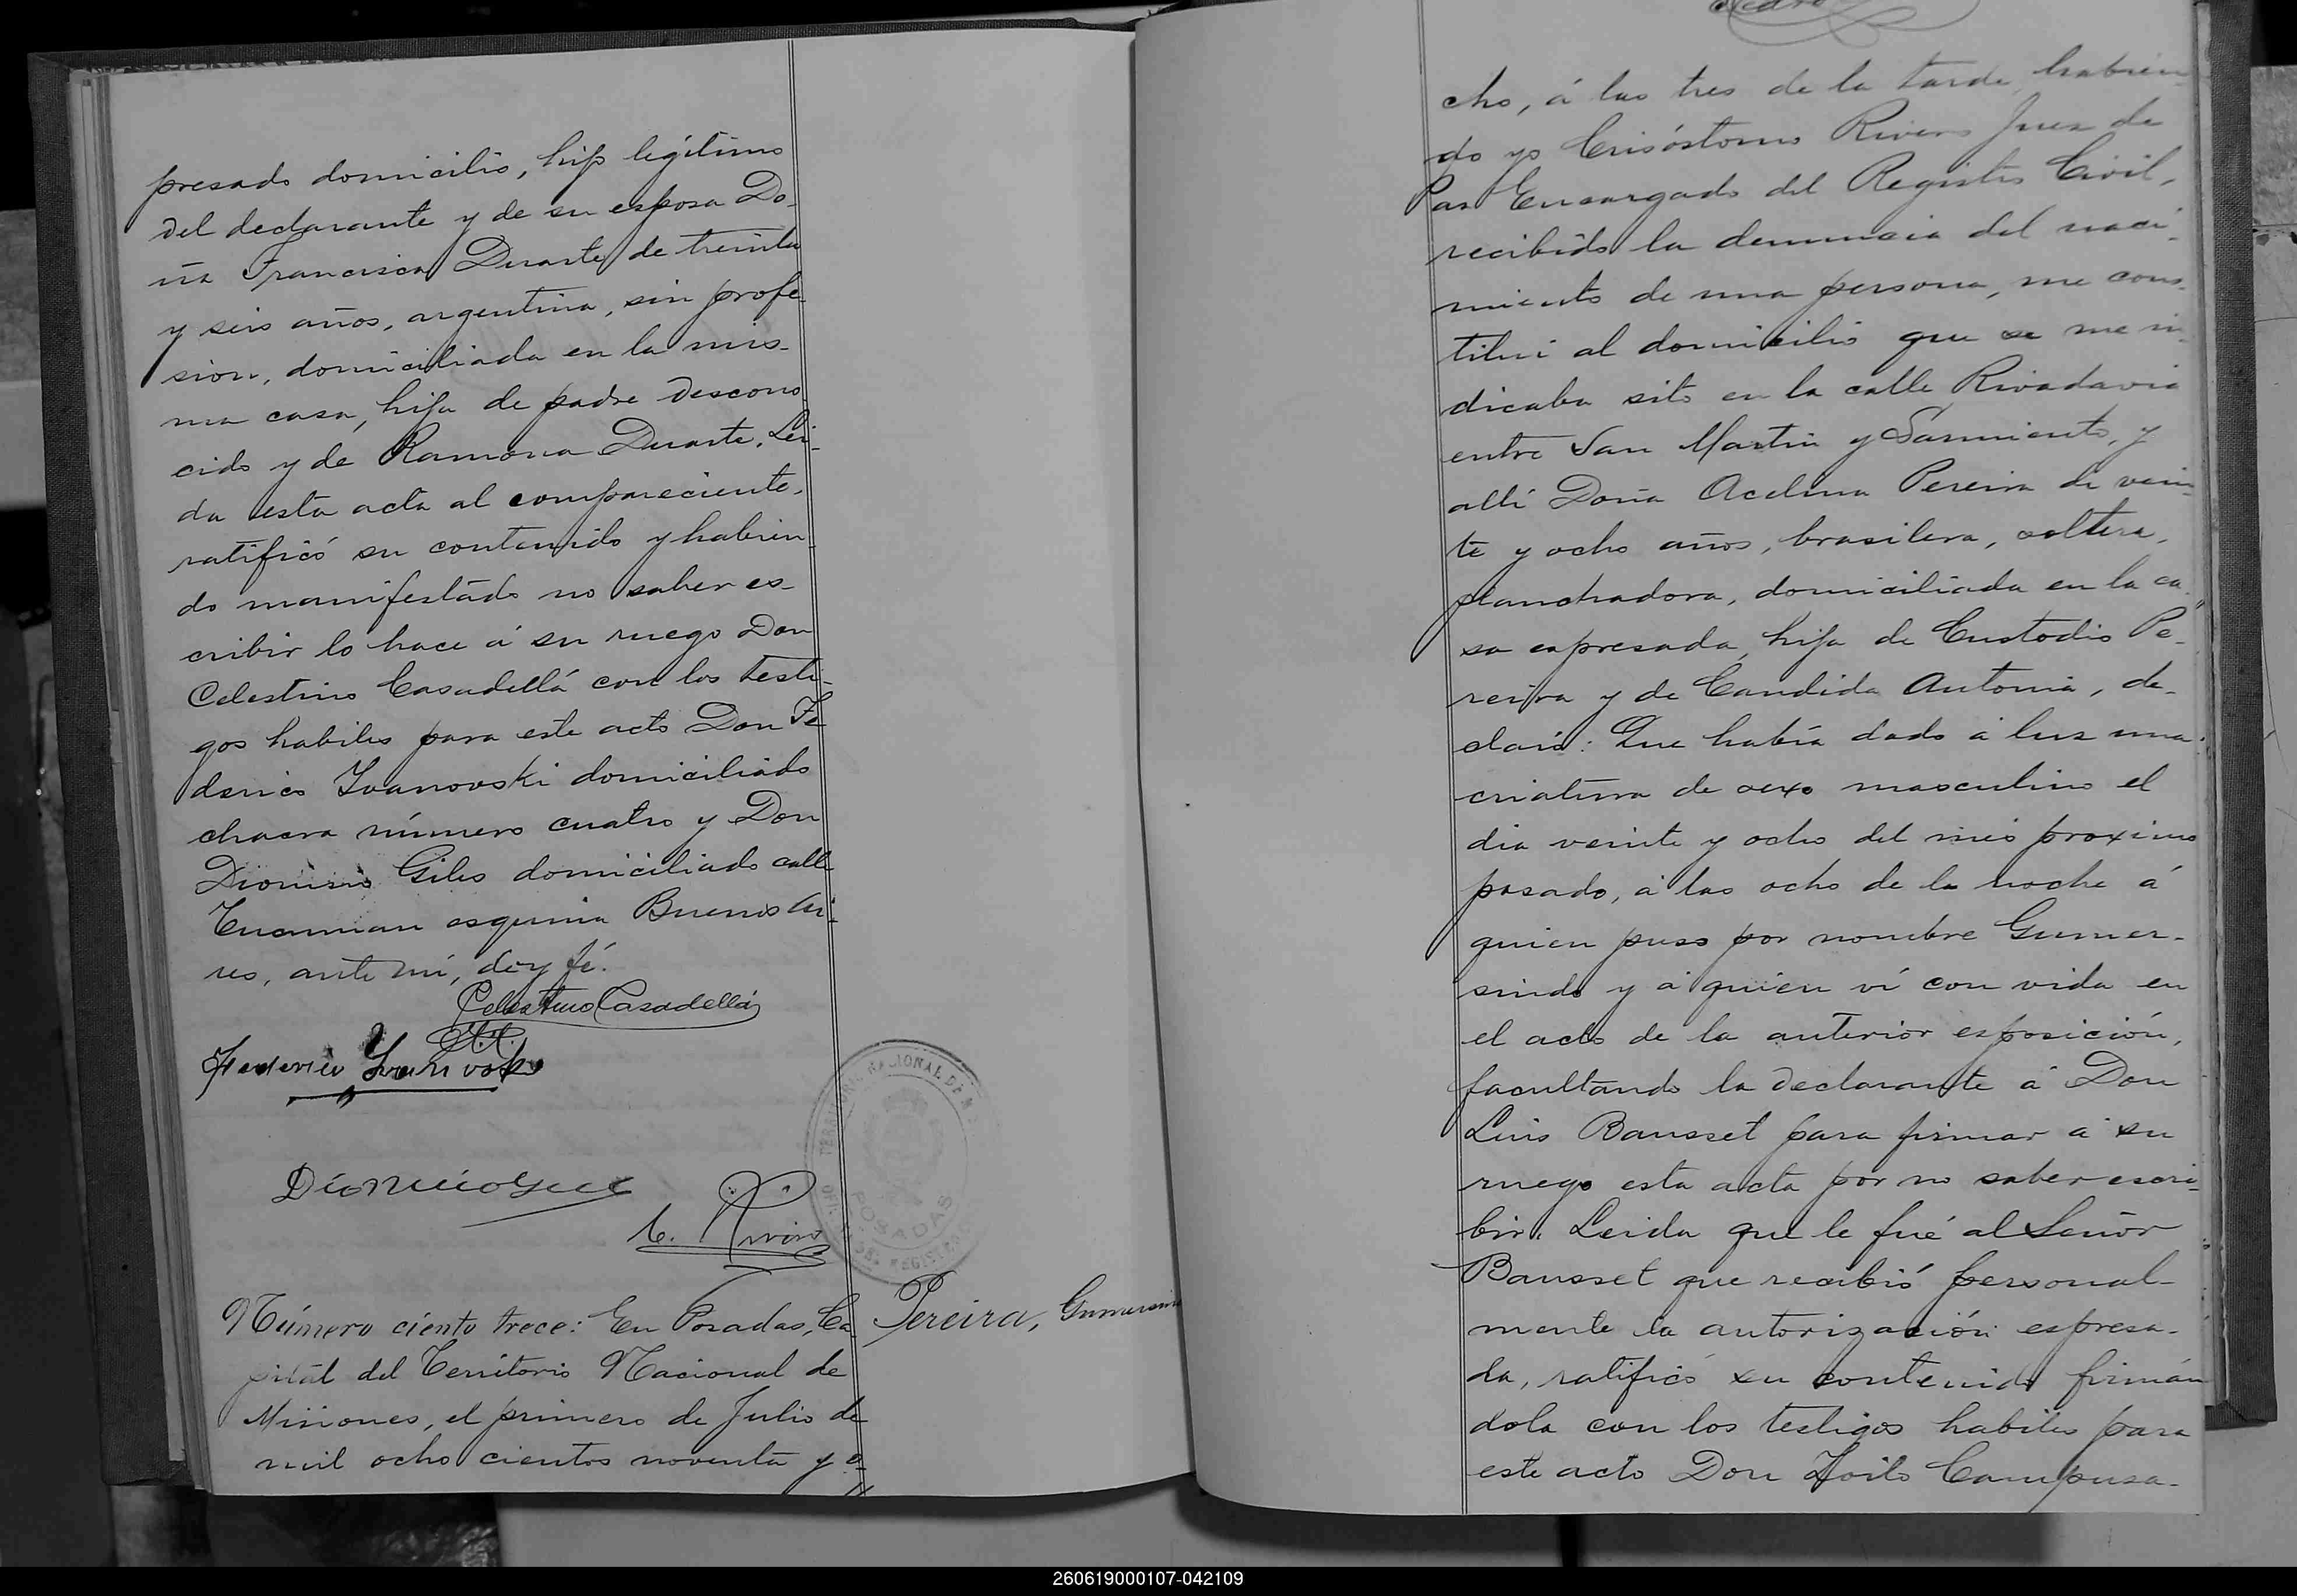 presado domicilio, hijo legítimo
del declarante y de su esposa Do-
ña Francisca Duarte, de treinta
y seis años, argentina, sin profe-
sion, domiciliada en la mis-
ma casa, hija de padre descono
cido y de Ramona Duarte. Lei-
da esta acta al compareciente,
ratificó su contenido y habien-
do manifestado no saber es-
cribir lo hace á su ruego Don
Celestino Casadellá con los testi-
gos habiles para este acto Don Fe-
derico Ivanovski domiciliado
chacra número cuatro y Don
Dionisio Giles domiciliado calle
Tucuman esquina Buenos Ai-
res, ante mí, doy fé.
Celestino Casadellá
Federico
C. Rivero
TERRITORIO NACIONAL DE
POSADAS
Número ciento trece: En Posadas, Ca
pital del Territorio Nacional de
Misiones, el primero de Julio de
mil ocho cientos noventa y o-
Pereira, Gumersin
cho, á las tres de la tarde, habien-
do yo Crisóstomo Rivero Juez de
Paz Encargado del Registro Civil,
recibido la denuncia del naci-
miento de una persona, me cons-
tituí al domicilio que se me in-
dicaba sito en la calle Rivadavia
entre San Martin y Sarmiento, y
allí Doña Acelina Pereira de vein-
te y ocho años, brasilera, soltera,
planchadora, domiciliada en la ca-
sa expresada, hija de Custodio Pe-
reira y de Candida Antonia, de-
claró: Que había dado á luz una
criatura de sexo masculino el
dia veinte y ocho del mes proximo
pasado, á las ocho de la noche á
quien puso por nombre Gumer-
sindo y á quién ví con vida en
el acto de la anterior esposición,
facultando la declarante á Don
Luis Bausset para firmar á su
ruego esta acta por no saber escri-
bir. Leida que le fué al Señor
Bausset que recibió personal-
mente la autorización espresa-
da, ratificó su contenido firmán
dola con los testigos habiles para
este acto Don Zoilo Campusa-
260619000107-042109